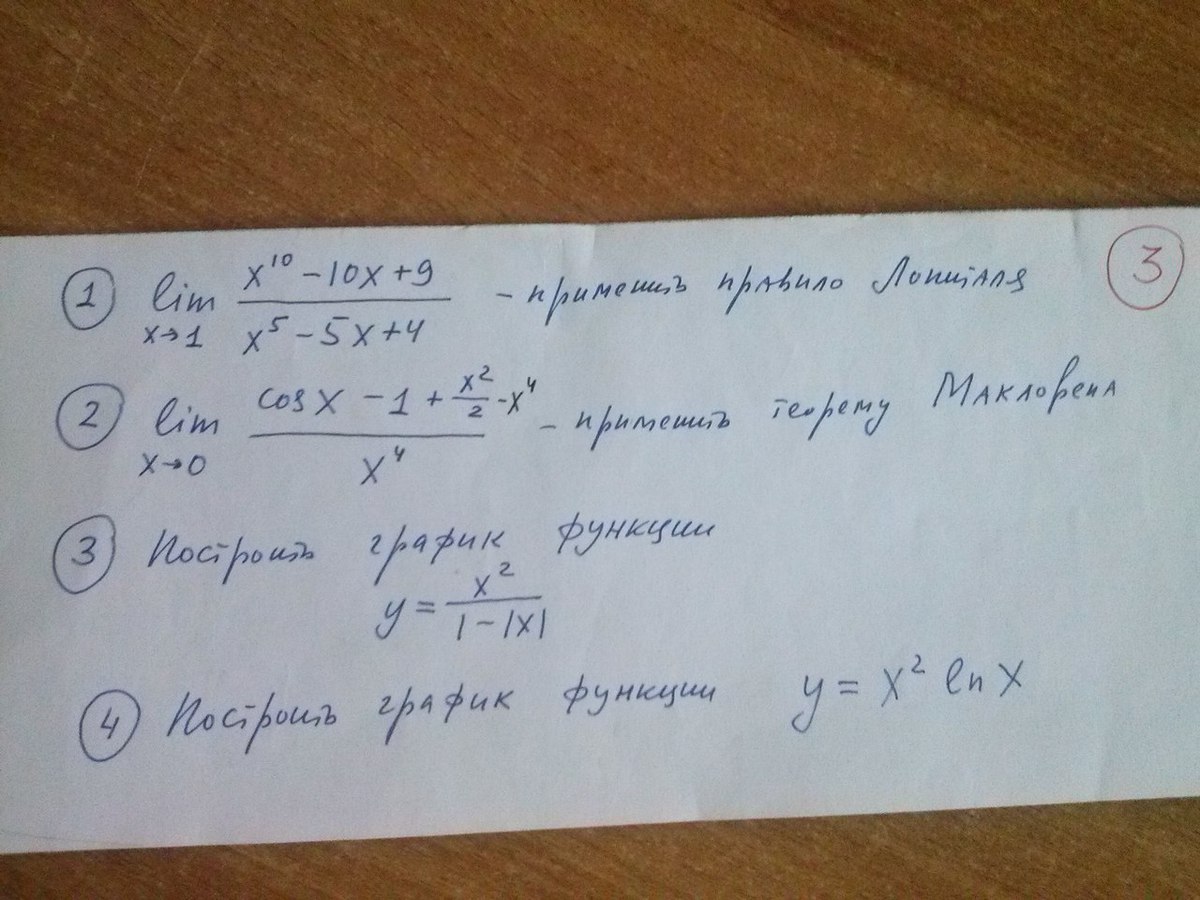 ① lim x→1 (x¹⁰ - 10x + 9)/(x⁵ - 5x + 4) - применить правило Лопиталя ③
② lim x→0 (cos x - 1 + x²/2 - x⁴)/x⁴ - применить теорему Маклорена
③ Построить график функции
y = x²/(1 - |x|)
④ Построить график функции y = x² ln x